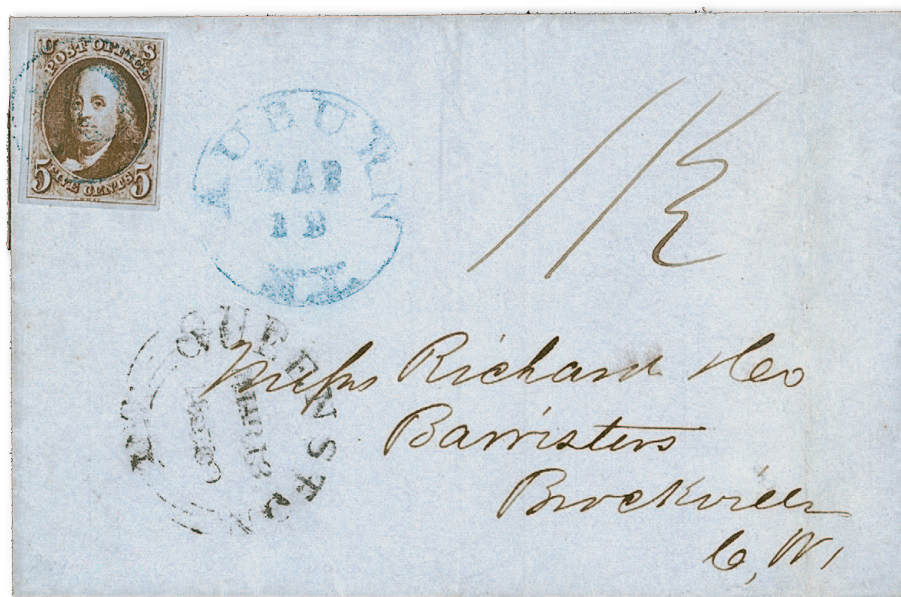 U S
POST OFFICE
5 5
FIVE CENTS
AUBURN
MAR
18
N.Y.
QUEENSTON
Mess Richard &Co
Barristers
Brockville
C, W,